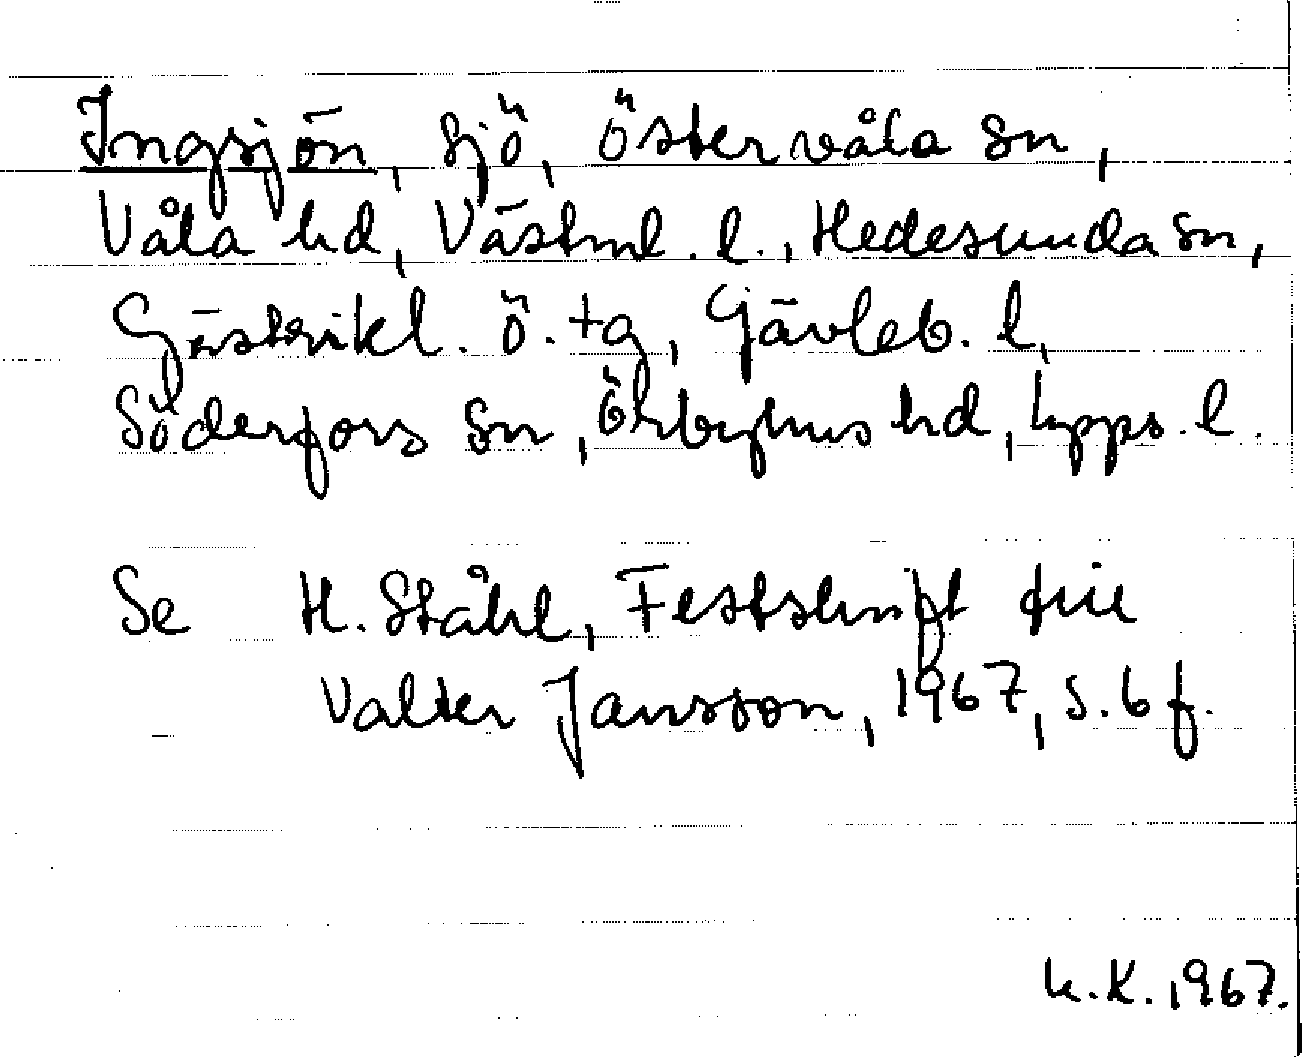 Ingsjön, sjö, Östervåla sn,
Våla hd, Västml. l., Hedesunda sn,
Gästrikl. ö. tg, Gävleb. l,
Söderfors sn, Örbyhus hd, Upps. l.
Se H. Ståhl, Festskrift till
Valter Jansson, 1967, s. 6 f.
K. 1967.